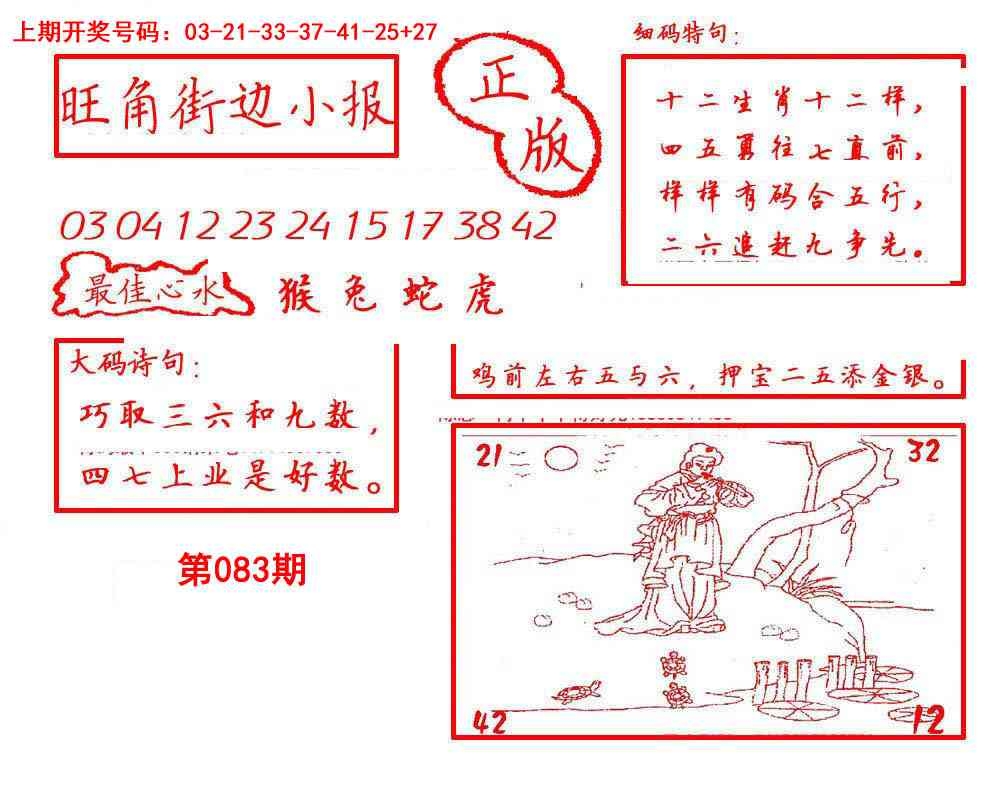 上期开奖号码：03-21-33-37-41-25+27
旺角街边小报
正版
细码特句：
十二生肖十二样，
四五勇往七直前，
样样有码合五行，
二六追赶九争先。
03 04 12 23 24 15 17 38 42
最佳心水
猴兔蛇虎
大码诗句：
巧取三六和九数，
四七上业是好数。
鸡前左右五与六，押宝二五添金银。
第083期
21
32
42
12